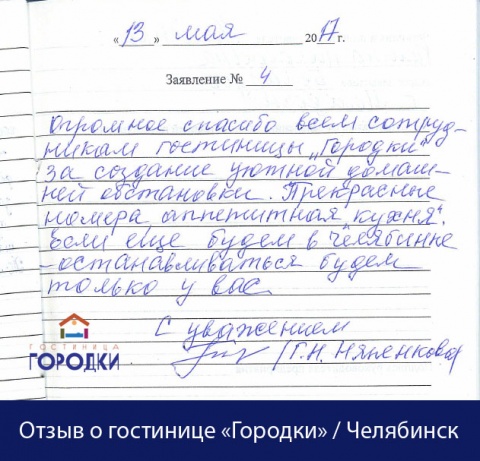 «13» мая 2017 г.
Заявление № 4
Огромное спасибо всем сотруд-
никам гостиницы „Городки"
за создание уютной домаш-
ней обстановки. Прекрасные
номера, аппетитная кухня".
Если еще будем в Челябинке
останавливаться будем
только у вас.
С уважением
/Г.Н.
ГОСТИНИЦА
ГОРОДКИ
Отзыв о гостинице «Городки» / Челябинск